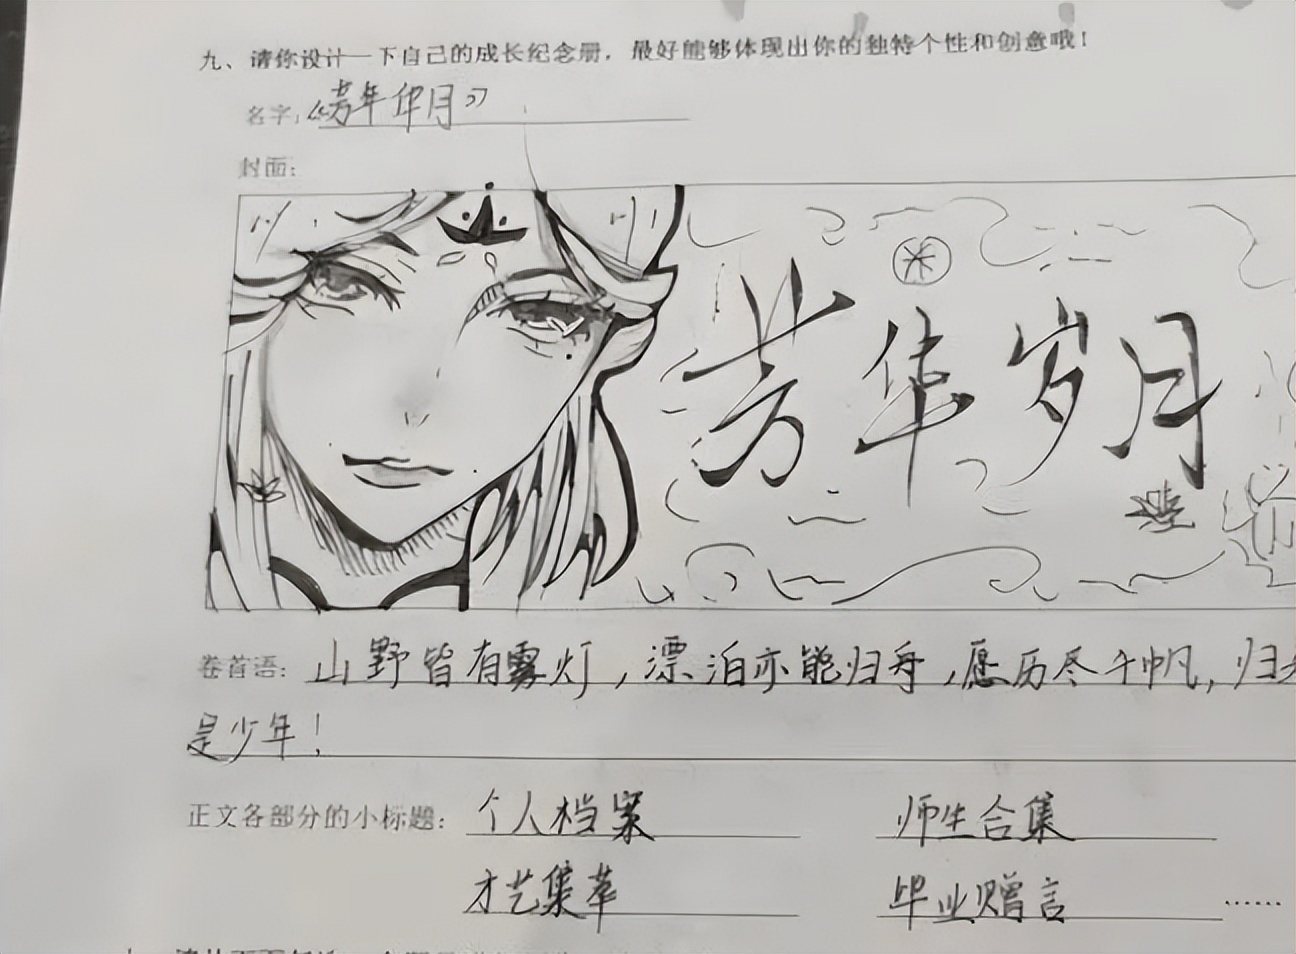 九、请你设计一下自己的成长纪念册，最好能够体现出你的独特个性和创意哦！
名字：《芳年华月》
封面：
芳华岁月
卷首语：山野皆有雾灯，漂泊亦能归舟，愿历尽千帆，归来
是少年！
正文各部分的小标题：个人档案 师生合集
才艺集萃 毕业赠言……